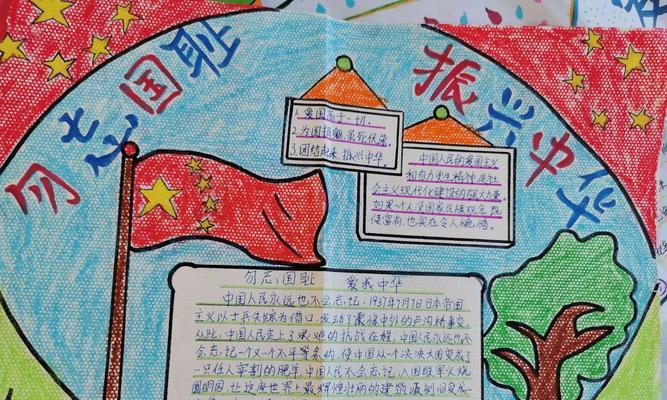 勿忘国耻
振兴中华
1.爱国高于一切,
2.为国捐躯虽死犹荣
3.团结起来,振兴中华
中国人民的爱国主义
和自力更生精神是社
会主义现代化建设的强大力量,
如果一个人没国家民族观念,既
使富有,也实在令人惋惜。
勿忘国耻 爱我中华
中国人民永远也不会忘记,1937年7月7日日本帝国
主义以士兵失踪为借口,发动了震惊中外的卢沟桥事变,
从此,中国人民走上了艰难的抗战征程,中国人民永远也不
会忘记一个又一个不平等条约,使中国从一个泱泱大国变成了
一只任人宰割的肥羊,中国人民不会忘记,八国联军火烧
圆明园,让这座世界上最辉煌壮丽的建筑顷刻间变成